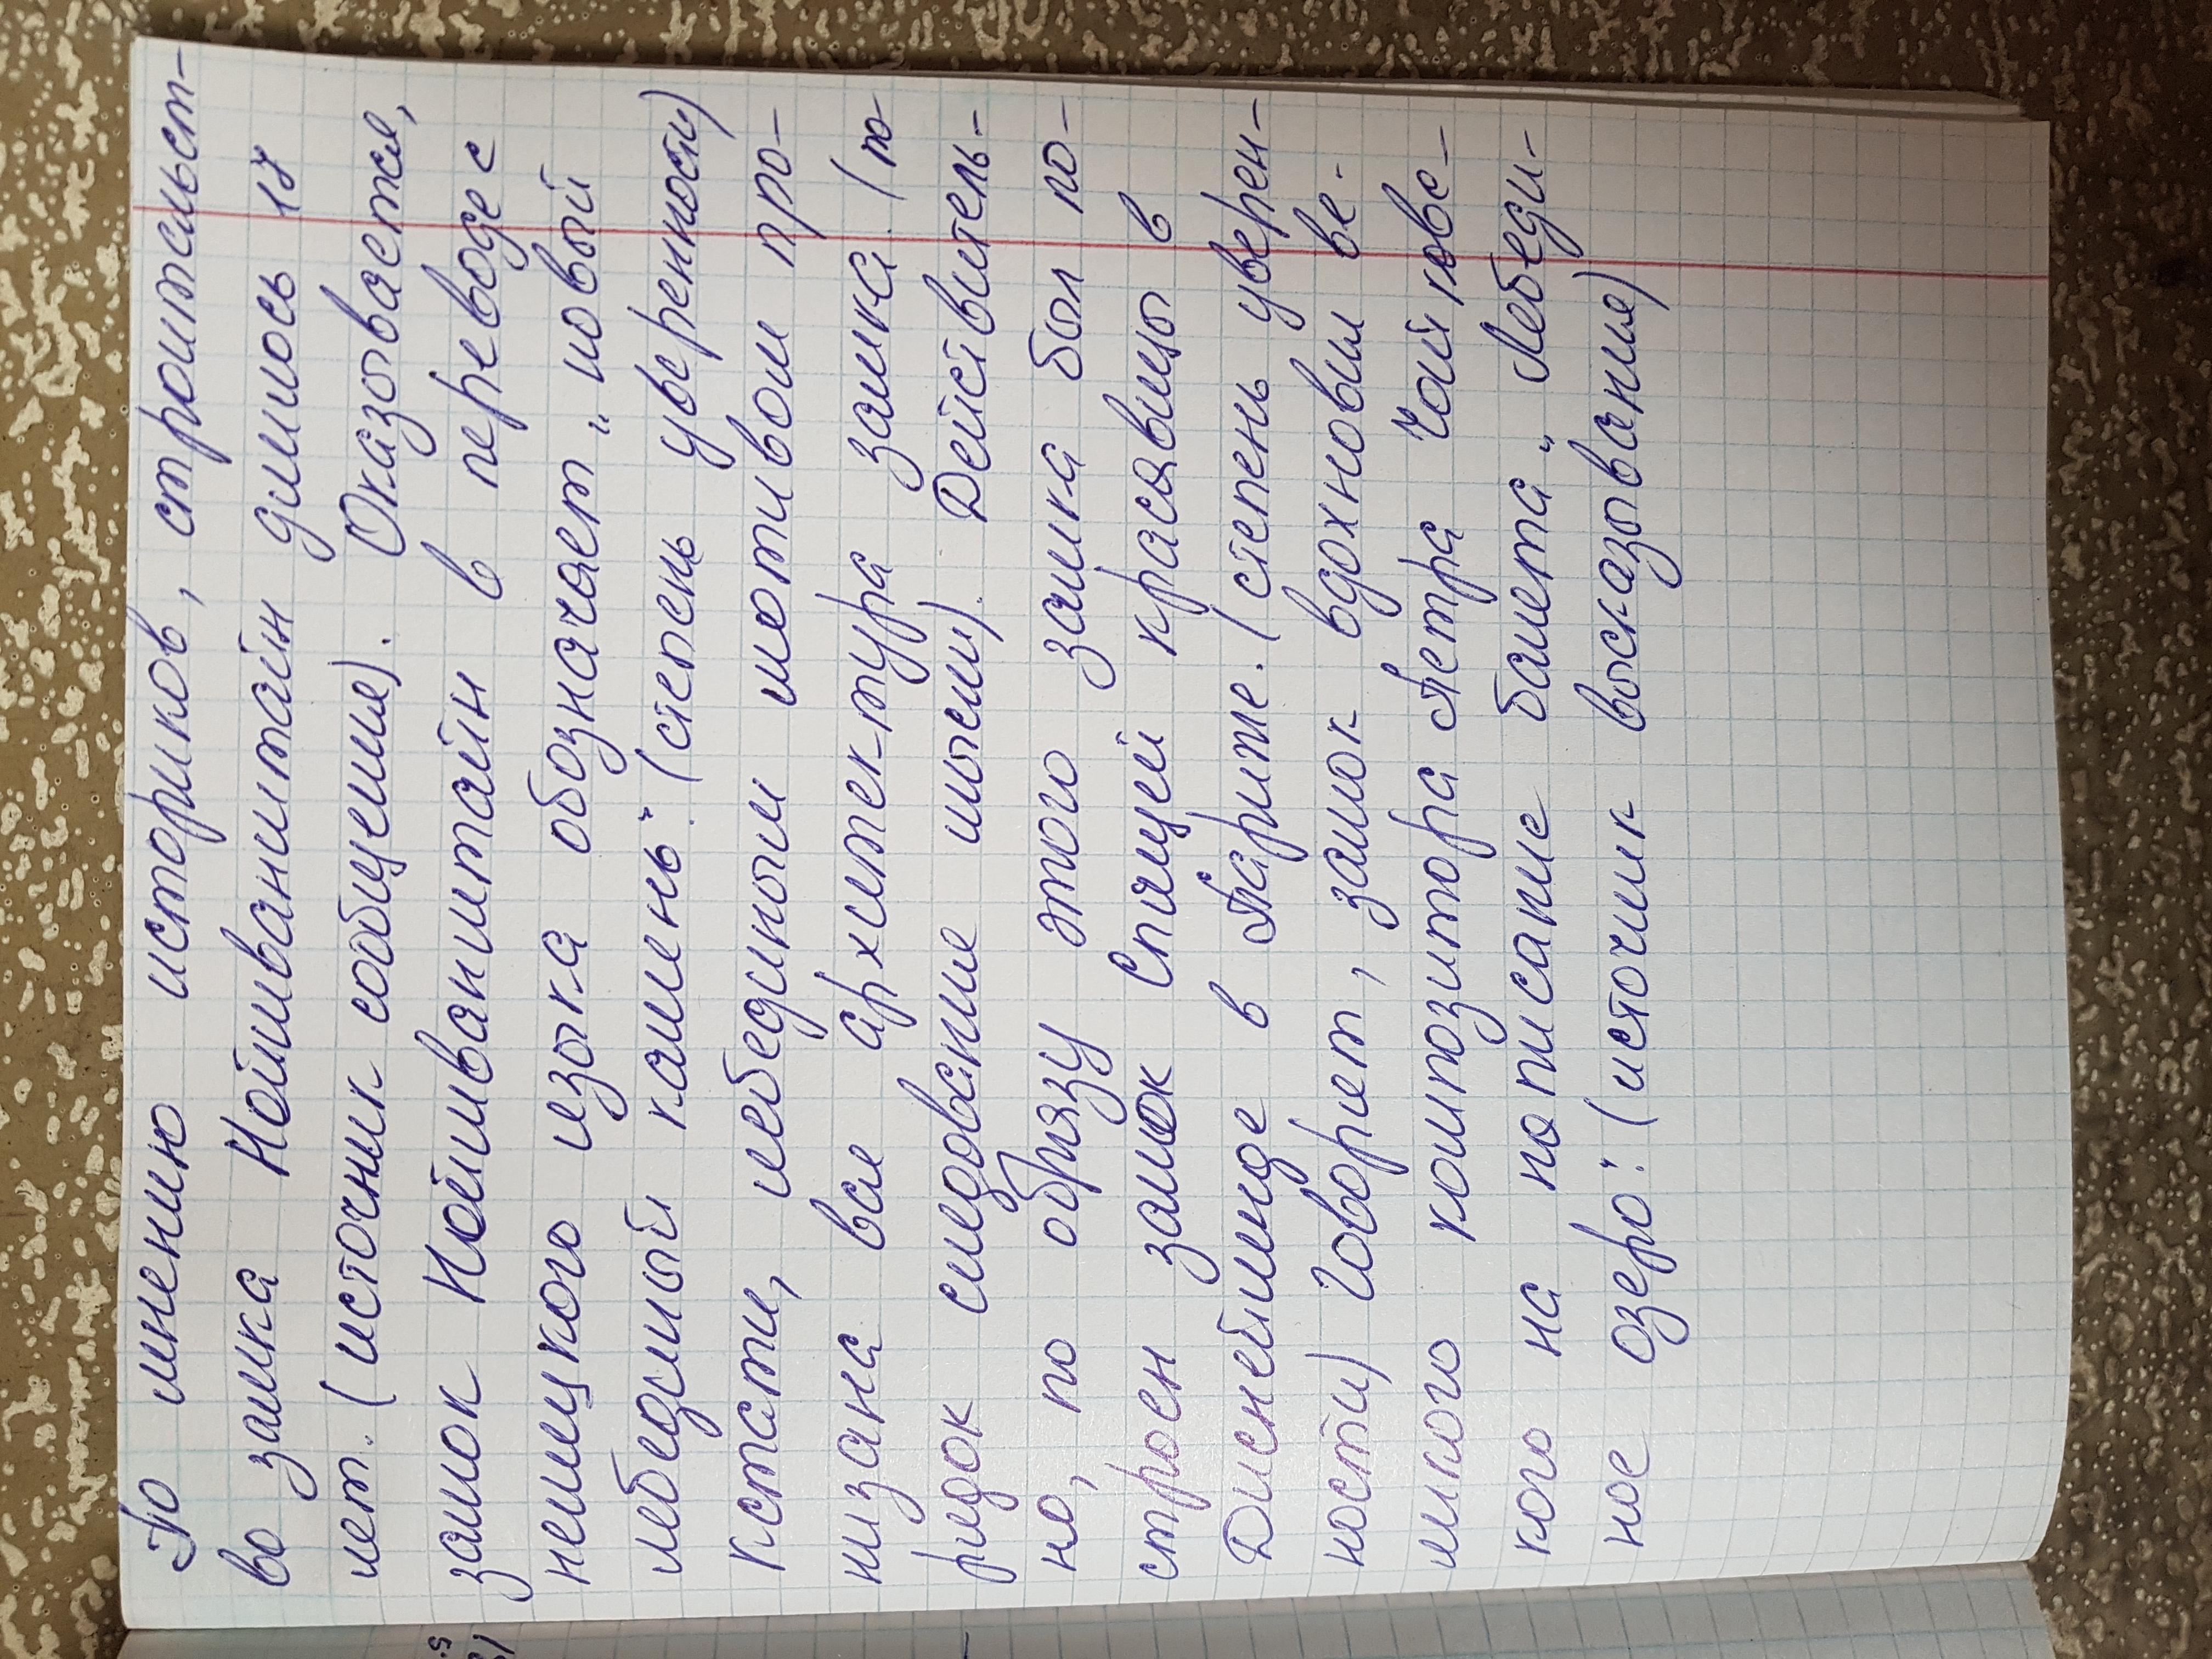 По мнению историков, строительст-
во замка Нойшванштайн длилось 17
лет. (источник сообщения). Оказывается,
замок Нойшванштайн в переводе с
немецкого языка обозначает „новый
лебединый камень". (степень уверенности)
Кстати, лебединым мотивом про-
низана вся архитектура замка. (по-
рядок следование мысли). Действитель-
но, по образу этого замка был по-
строен замок Спящей красавицы в
Диснейлэнде в Париже. (степень уверен-
ности) Говорят, замок вдохновил ве-
ликого композитора Петра Чайковс-
кого на написание балета „Лебеди-
ное озеро". (источник высказывания)